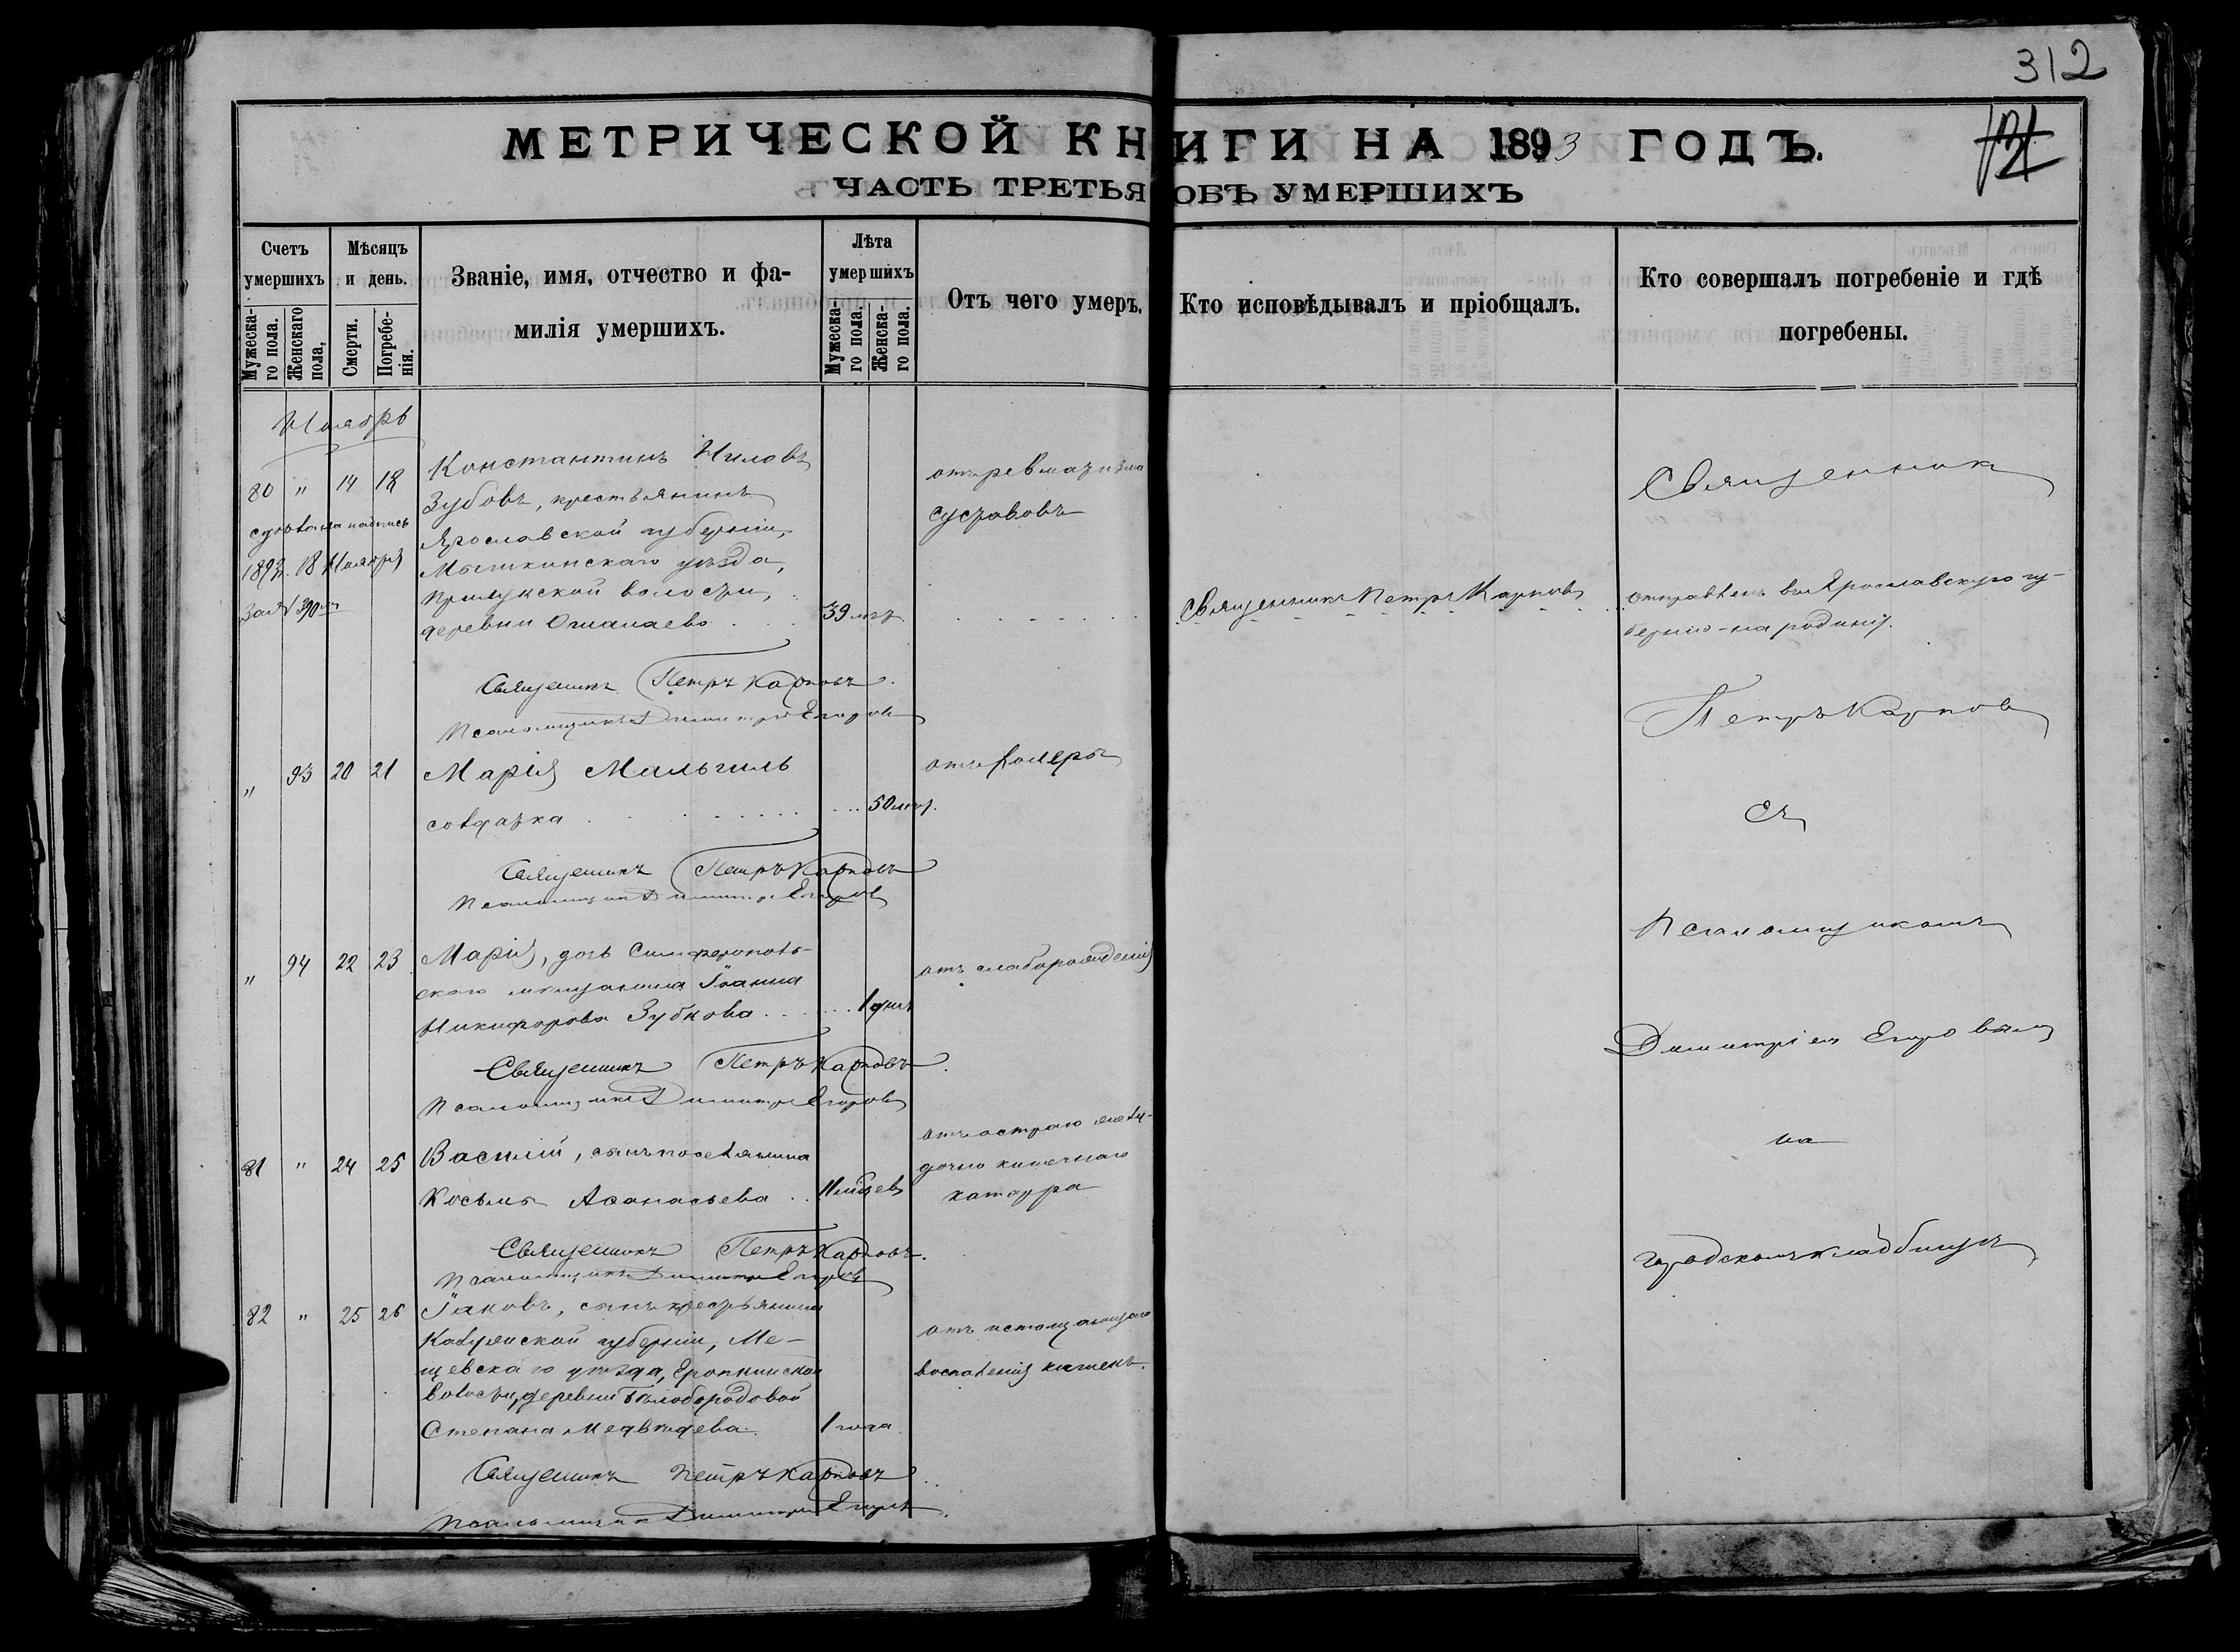 312
МЕТРИЧЕСКОЙ КНИГИ НА 1893 ГОДЪ.
ЧАСТЬ ТРЕТЬЯ ОБЪ УМЕРШИХЪ
Счетъ умершихъ
Мужеска-го пола.
Женскаго пола.
Мѣсяцъ и день.
Смерти.
Погребе-нія.
Званіе, имя, отчество и фа-
милія умершихъ.
Лѣта умершихъ
Мужеска-го пола.
Женска-го пола.
Отъ чего умеръ.
Кто исповѣдывалъ и пріобщалъ.
Кто совершалъ погребеніе и гдѣ
погребены.
Ноябрь
80 " 14 18
Константинъ Ниловъ
Зубовъ, крестьянинъ
Ярославской губерніи,
Мышкинскаго уѣзда,
волости,
деревни
39 лѣтъ.
отъ ревматизма
суставовъ
надпись
1893 г. 18 Ноября
за № 390
Священникъ Петръ Карповъ
отправленъ въ Ярославскую гу-
бернію - на родину.
Священникъ Петръ Карповъ.
Псаломщикъ Димитрій Егоровъ
" 93 20 21
Марія Мальгиль
солдатка
50 лѣтъ.
отъ холеры
Священникъ Петръ Карповъ
Псаломщикъ Димитрій Егоровъ
" 94 22 23
Марія, дочь Симферополь-
скаго мѣщанина Іоанна
Никифорова Зубкова
1 дня
отъ слаборожденія
Священникъ Петръ Карповъ.
Псаломщикъ Димитрій Егоровъ
81 " 24 25
Василій, сынъ поселянина
Косьмы Аѳанасьева
11 мѣсяцев
отъ остраго желу-
дочно кишечнаго
катарра
Священникъ Петръ Карповъ.
Псаломщикъ Димитрій Егоровъ
82 " 25 26
Іаковъ, сынъ крестьянина
Калужской губерніи, Ме-
щевскаго уѣзда, Еропкинской
волости, деревни Бѣлобородовой
Степана Медвѣдева.
1 года
отъ истощающаго
воспаленія кишекъ.
Священникъ Петръ Карповъ
Псаломщикъ Димитрій Егоровъ
Священник
Петръ Карповъ
съ
Псаломщикомъ
Димитріемъ Егоровымъ
на
городскомъ кладбищѣ